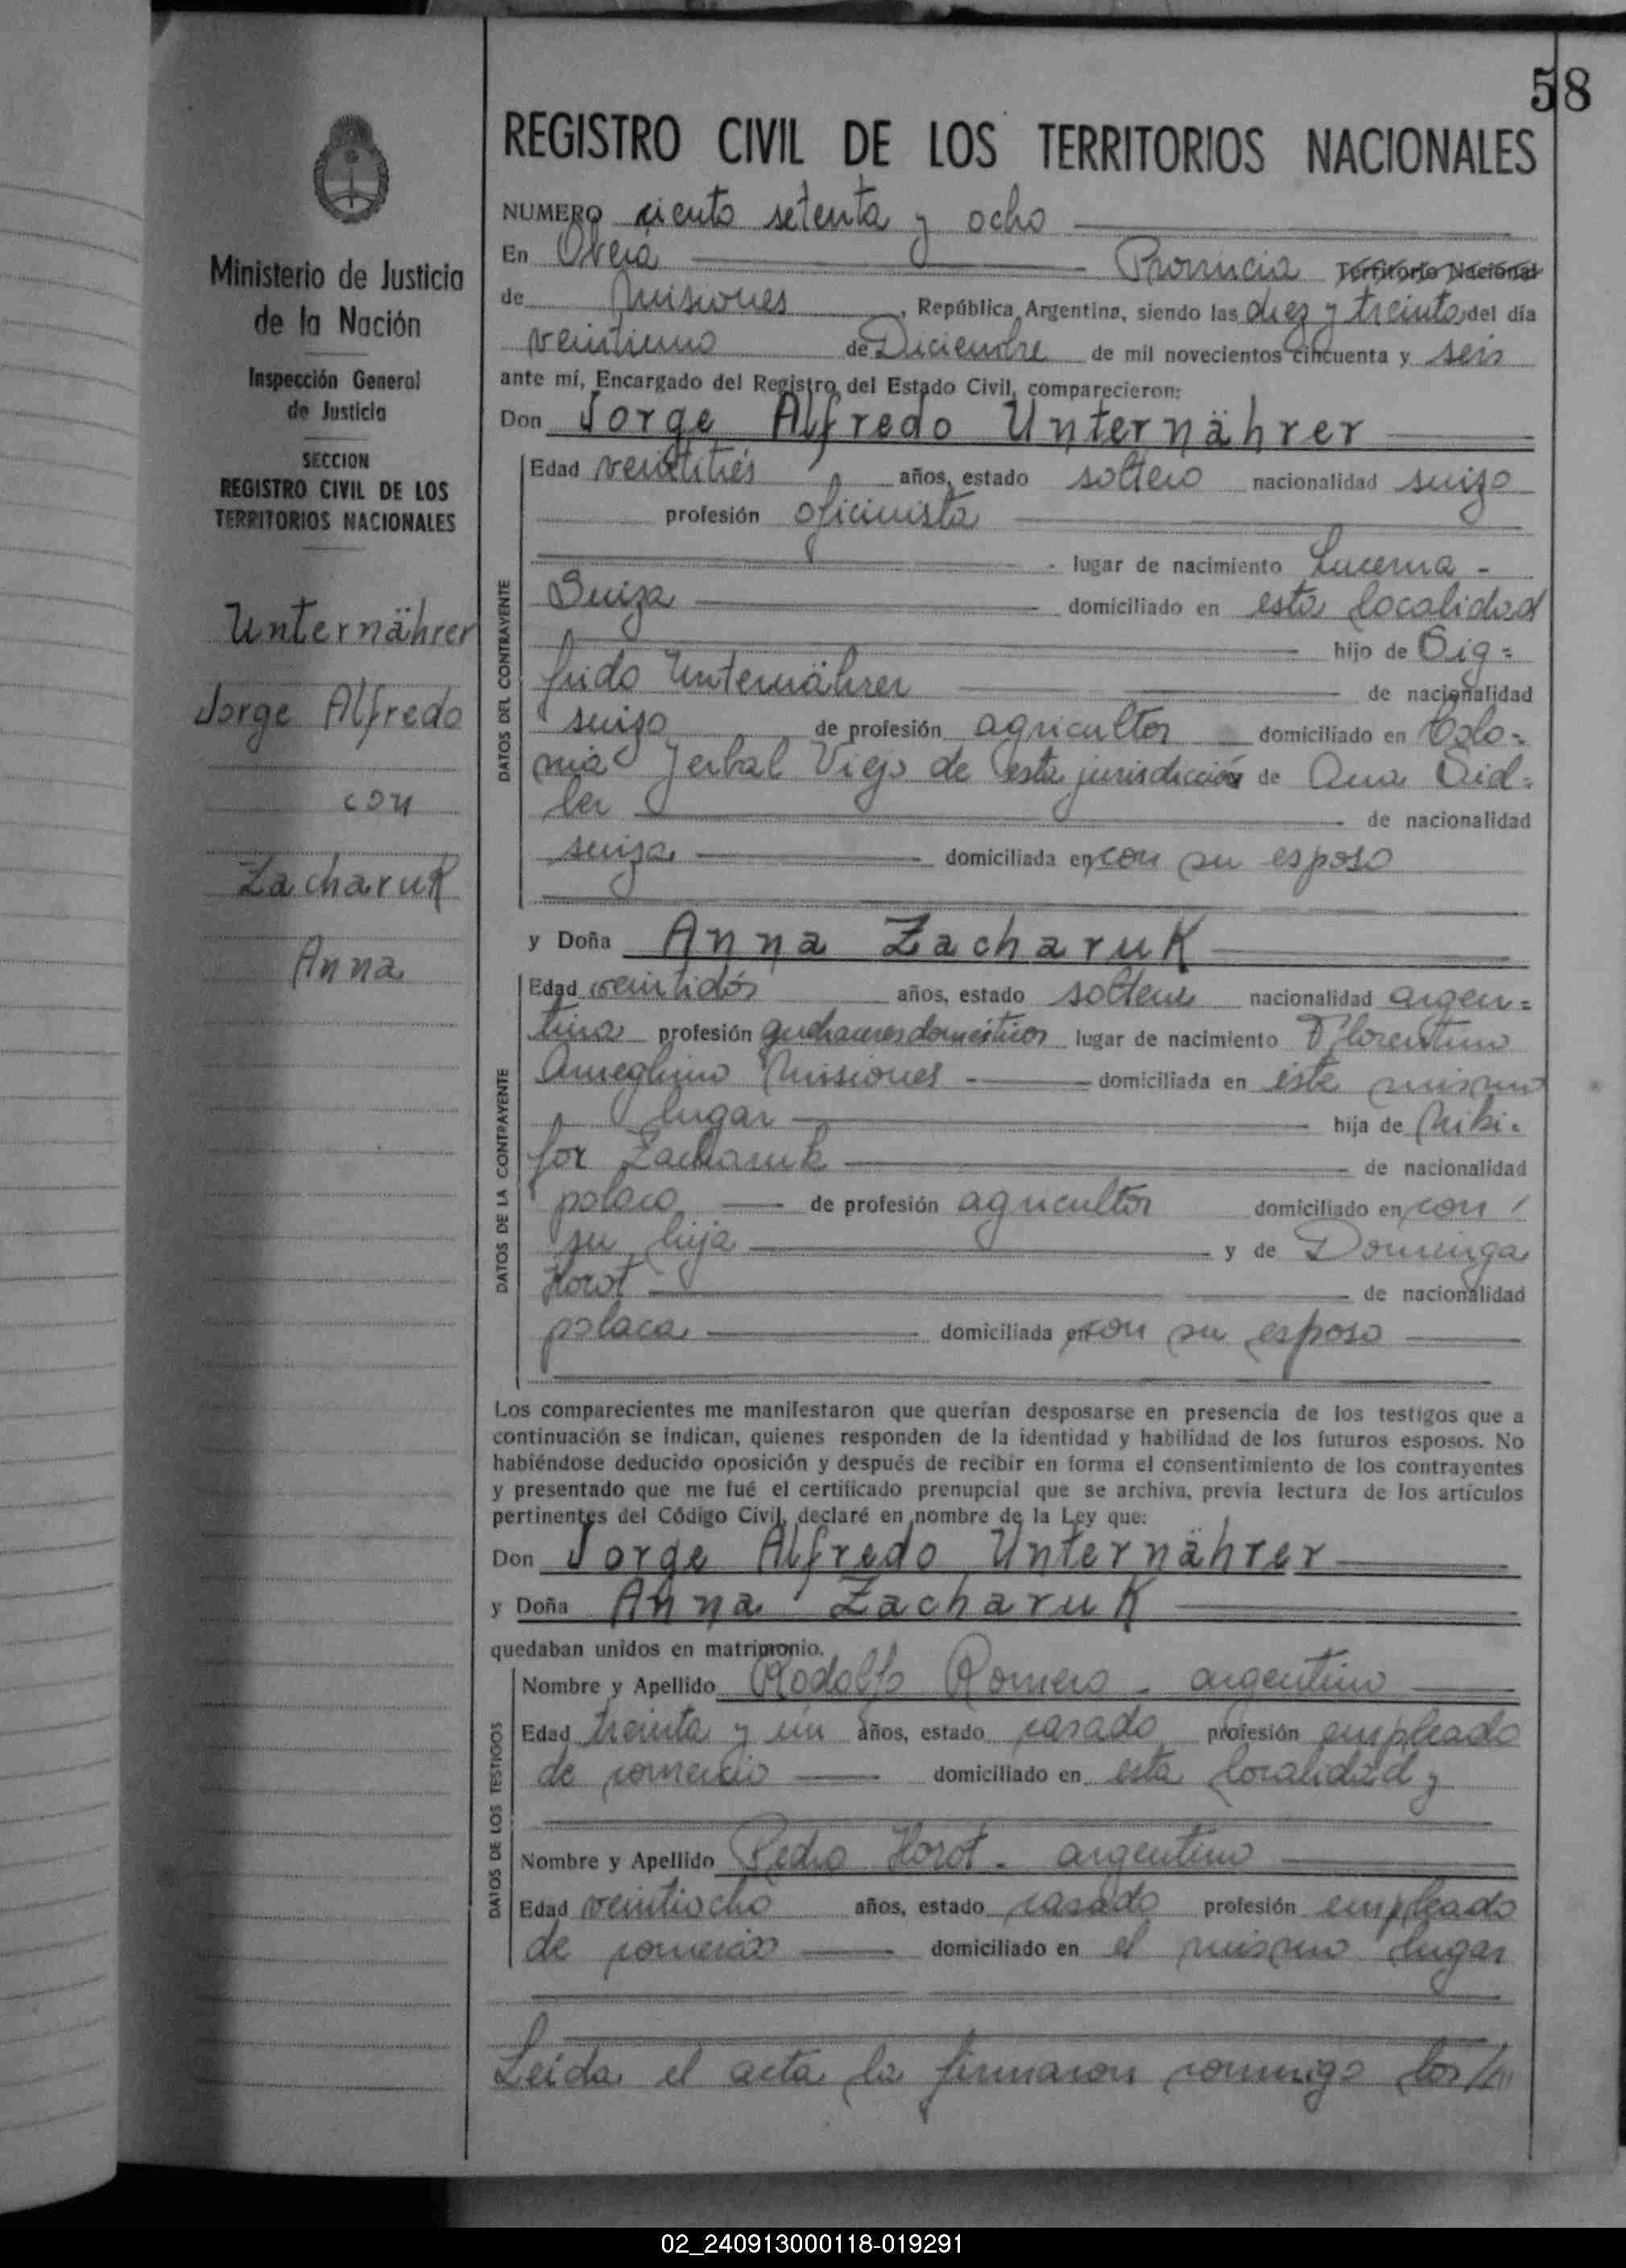 58
REGISTRO CIVIL DE LOS TERRITORIOS NACIONALES
Ministerio de Justicia
de la Nación
Inspección General
de Justicia
SECCION
REGISTRO CIVIL DE LOS
TERRITORIOS NACIONALES
Unternährer
Jorge Alfredo
con
ZacharuK
Anna
NUMERO ciento setenta y ocho
En Oberá Provincia Territorio Nacional
de Misiones, República Argentina, siendo las diez y treinta del día
veintiuno de Diciembre de mil novecientos cincuenta y seis
ante mí, Encargado del Registro del Estado Civil, comparecieron:
Don Jorge Alfredo Unternährer
DATOS DEL CONTRAYENTE
Edad veintitrés años, estado soltero nacionalidad suizo
profesión oficinista
lugar de nacimiento Lucerna -
Suiza domiciliado en esta localidad
hijo de Sig=
frido Unternährer de nacionalidad
suizo de profesión agricultor domiciliado en Colo=
nia Yerbal Viejo de esta jurisdicción de Ana Sid=
ler de nacionalidad
suiza domiciliada en con su esposo
y Doña Anna ZacharuK
DATOS DE LA CONTRAYENTE
Edad veintidós años, estado soltera nacionalidad argen=
tina profesión quehaceres domésticos lugar de nacimiento Florentino
Ameghino Misiones - domiciliada en este mismo
lugar hija de Niki=
for Zacharuk de nacionalidad
polaco de profesión agricultor domiciliado en con
su hija y de Dominga
Horot de nacionalidad
polaca domiciliada en con su esposo
Los comparecientes me manifestaron que querían desposarse en presencia de los testigos que a
continuación se indican, quienes responden de la identidad y habilidad de los futuros esposos. No
habiéndose deducido oposición y después de recibir en forma el consentimiento de los contrayentes
y presentado que me fué el certificado prenupcial que se archiva, previa lectura de los artículos
pertinentes del Código Civil, declaré en nombre de la Ley que:
Don Jorge Alfredo Unternährer
y Doña Anna ZacharuK
quedaban unidos en matrimonio.
DATOS DE LOS TESTIGOS
Nombre y Apellido Rodolfo Romero - argentino
Edad treinta y un años, estado casado profesión empleado
de comercio domiciliado en esta localidad y
Nombre y Apellido Pedro Horot - argentino
Edad veintiocho años, estado casado profesión empleado
de comercio domiciliado en el mismo lugar
Leída el acta la firmaron conmigo los
02_240913000118-019291